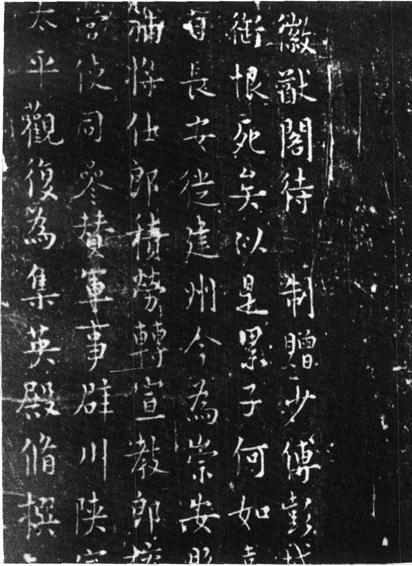 徽猷閣待 制贈少傅彭城
銜恨死矣以是累子何如
自長安徙建州今為崇安縣
補將仕郎積勞轉宣教郎
使同參贊軍事辟川陝宣
太平觀復為集英殿脩撰